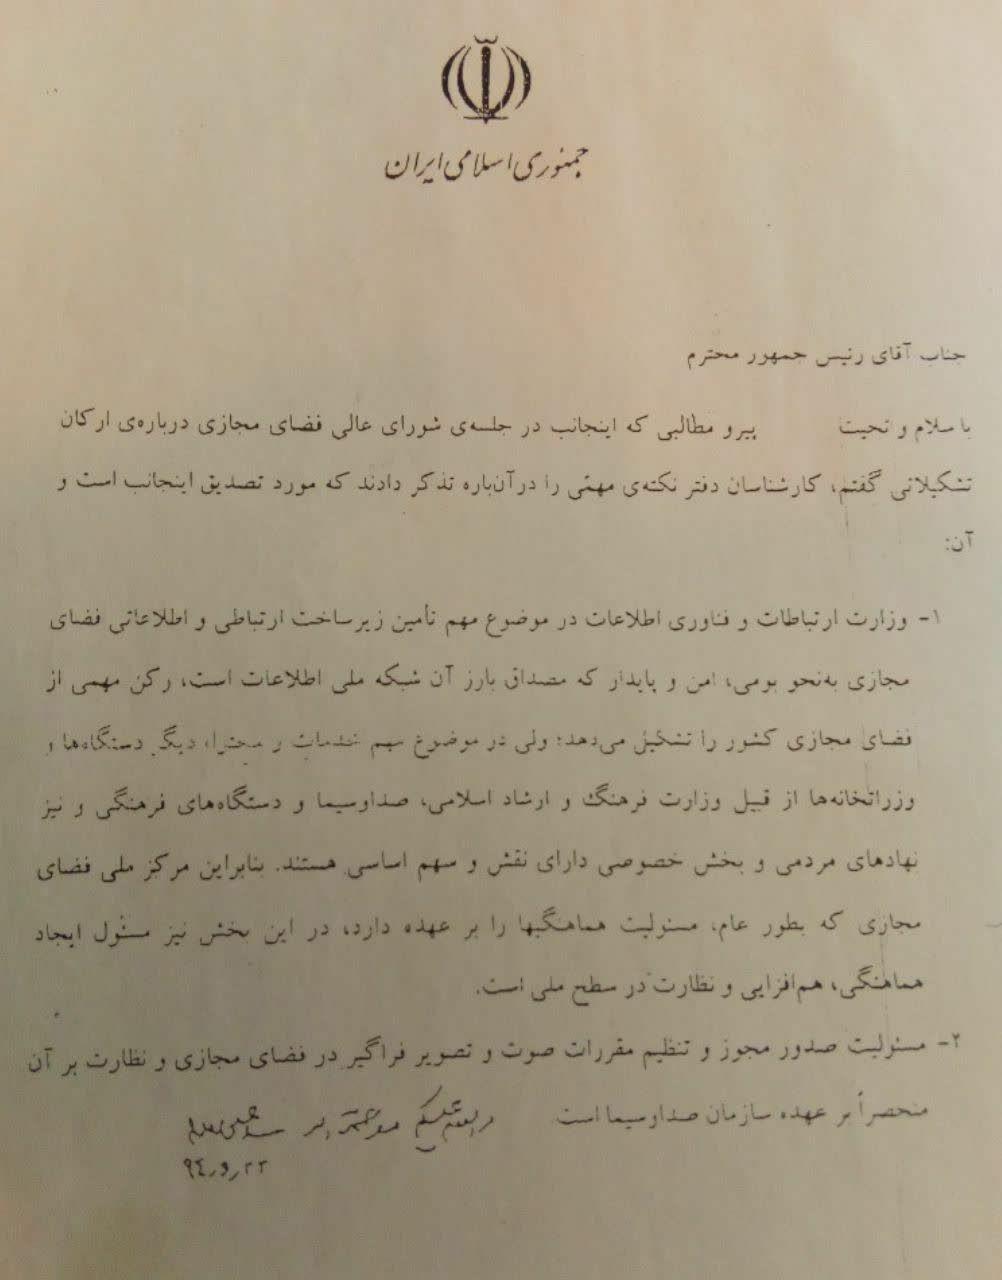 جمهوری اسلامی ایران
جناب آقای رئیس جمهور محترم
با سلام و تحیت پیرو مطالبی که اینجانب در جلسه‌ی شورای عالی فضای مجازی درباره‌ی ارکان
تشکیلاتی گفتم، کارشناسان دفتر نکته‌ی مهمّی را درآن‌باره تذکر دادند که مورد تصدیق اینجانب است و
آن:
۱- وزارت ارتباطات و فناوری اطلاعات در موضوع مهم تأمین زیرساخت ارتباطی و اطلاعاتی فضای
مجازی به‌نحو بومی، امن و پایدار که مصداق بارز آن شبکه ملی اطلاعات است، رکن مهمی از
فضای مجازی کشور را تشکیل می‌دهد؛ ولی در موضوع مهم خدمات و محتوا، دیگر دستگاه‌ها و
وزراتخانه‌ها از قبیل وزارت فرهنگ و ارشاد اسلامی، صداوسیما و دستگاه‌های فرهنگی و نیز
نهادهای مردمی و بخش خصوصی دارای نقش و سهم اساسی هستند. بنابراین مرکز ملی فضای
مجازی که بطور عام، مسئولیت هماهنگیها را بر عهده دارد، در این بخش نیز مسئول ایجاد
هماهنگی، هم‌افزایی و نظارت در سطح ملی است.
۲- مسئولیت صدور مجوز و تنظیم مقررات صوت و تصویر فراگیر در فضای مجازی و نظارت بر آن
منحصراً بر عهده سازمان صداوسیما است. والسلام علیکم و رحمة الله
۹۴٫۶٫۲۲